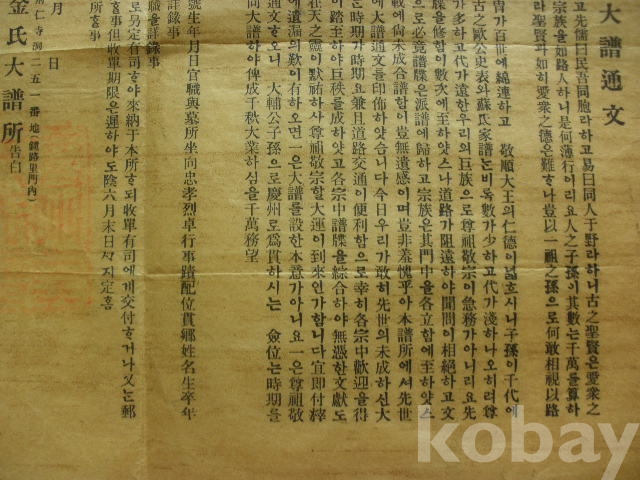 大譜通文
고先儒曰民吾同胞라하고易曰同人于野라하니古之聖賢은愛衆之
宗族을如路人하니是何薄行이리요人之子孫이其數는千萬를算하
라聖賢과如히愛衆之德은難하나豈以一祖之孫으로何敢相視以路
冑가百世에綿連하고 敬順大王의仁德이넓흐시니子孫이千代에
古之歐公史表와蘇氏家譜는비록數가少하고代가淺하나오히려尊
가多하고代가遠한우리의巨族으로尊祖敬宗이急務가아니리요先
牒을修合함이數次에至하얏스나道路가阻遠하야聞間이相絕하고文
으로必竟譜牒은派譜에歸하고宗族은其門中을各立함에至하얏스
載에尙未成合譜함이豈無遺感이며豈非羞愧乎아本譜所에셔先世
은大譜通文을印佈하얏습니다今日우리가敢히先世의未成하신大
은時期가時期요兼且道路交通이便利함으로幸히各宗中歡迎을得
이踏至하야巨秩를成하얏고各宗中譜牒을綜合하야無憑한文獻도
在天之靈이默祐하사尊祖敬宗할大運이到來인가합니다宜即付粹
에遺漏의歎이有하오면一은大譜를設한本意가아니요一은尊祖敬
通文하오니 大輔公子孫으로慶州로爲貫하시는 僉位는時期를
同大譜하야俾成千秋大業하심을千萬務望
號生年月日官職與墓所坐向忠孝烈卓行事蹟配位貫鄕姓名生卒年
職을詳錄事
詳錄事
로易定有司하야來納于本所하되收單有司에게交付하거나又는郵
事但收單期限은遲하야도陰六月末日까지定홈
所홈事
月 日
仁寺洞二五一番地(鍾路里門內)
金氏大譜所告白
kobay